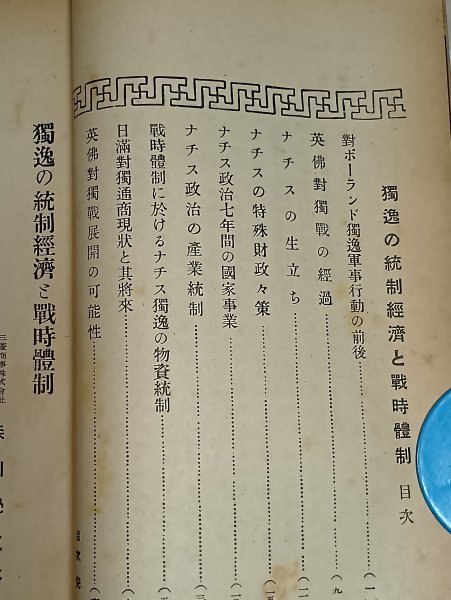 獨逸の統制經濟と戰時體制 目次
對ポーランド獨逸軍事行動の前後……(一
英佛對獨戰の經過……(九
ナチスの生立ち……(一
ナチスの特殊財政々策……(一五
ナチス政治七年間の國家事業……(二
ナチス政治の產業統制……(三
戰時體制に於けるナチス獨逸の物資統制……(五
日滿對獨通商現狀と其將來……(
英佛對獨戰展開の可能性……(
目次完
獨逸の統制經濟と戰時體制
三菱商事株式會社